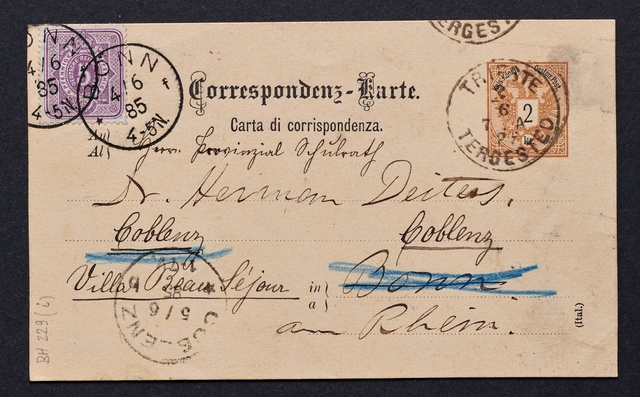 TERGESTEO
BONN
4 6
85
4-5N.
BONN
4 6
85
4-5N.
f
Correspondenz-Karte.
Carta di corrispondenza.
TRIESTE
TERGESTEO
2
An
Al
Herrn Provinzial Schulrath
Dr. Herman Deiters.
Coblenz
Coblenz
Villa Beau Séjour in
a
Bonn
am Rhein.
5/6
(Ital.)
BH 229 (6)